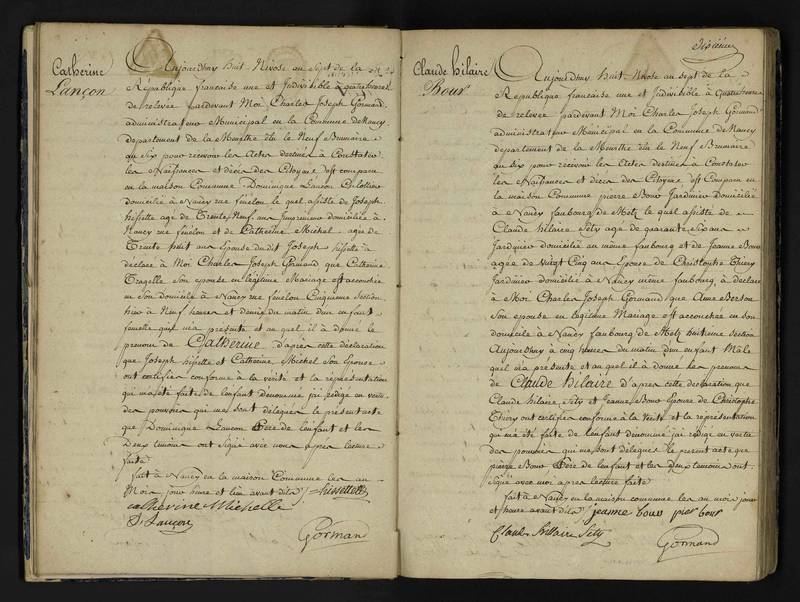 Catherine
Lançon
Aujourdhuy huit Nivose an Sept de la
République francaise une et Indivisible à quatre heures
de relevée pardevant Moi Charles Joseph Gormand
administrateur Municipal en la Commune de Nancy
departement de la Meurthe élu le Neuf Brumaire
an Six pour recevoir les Actes destinés à Constater
les Naissances et décès des Citoyens est comparu
en la maison Commune Dominique Lançon
domicilié à Nancy rue fénélon lequel assisté de Joseph
hissette agé de Trente Neuf ans Imprimeur domicilié à
Nancy rue fénélon et de Catherine Michel agée de
Trente huit ans Epouse dudit Joseph hissette à
déclaré à Moi Charles Joseph Gormand que Catherine
Tragelle Son epouse en légitime Mariage est accouchée
en Son domicile à Nancy rue fénélon Cinquieme Section
hier à Neuf heures et demie du matin d'un enfant
femelle qui ma presenté et au quel il à donné le
prenom de Catherine d'après cette déclaration
que Joseph hissette et Catherine Michel Son Epouse
ont certifiée conforme à la verité et la représentation
qui m'a été faite de lenfant denommé j'ai rédigé en vertu
des pouvoirs qui me sont délegués le présent acte
que Dominique Lançon Pere de lenfant et les
Deux temoins ont Signé avec nous après lecture
faite
fait à Nancy en la maison Commune les an
Mois jour heure et lieu avant dits J hissette
catherine Michelle
D. Lançon
Gormand
dixième
Claude hilaire
Bour
Aujourdhuy huit Nivose an sept de la
République francaise une et Indivisible à Quatre heures
de relevée pardevant Moi Charles Joseph Gormand
administrateur Municipal en la Commune de Nancy
departement de la Meurthe élu le Neuf Brumaire
an Six pour recevoir les Actes destinés à Constater
les Naissances et décès des Citoyens est Comparu en
la maison Commune pierre Bour Jardinier Domicilié
à Nancy faubourg de Metz le quel assisté de
Claude hilaire Sety agé de quarante Six ans
Jardinier domicilié au même faubourg et de Jeanne Bour
agée de Vingt Cinq ans Epouse de Christophe Thiery
Jardinier domicilié à Nancy même faubourg à déclaré
à Moi Charles Joseph Gormand que Anne Berson
Son epouse en légitime Mariage est accouchée en son
domicile à Nancy faubourg de Metz huitieme Section
Aujourdhuy à cinq heures du matin d'un enfant Mâle
quel m'a presenté et au quel il à donné les prenoms
de Claude hilaire d'après cette déclaration que
Claude hilaire Sety et Jeanne Bour Epouse de Christophe
Thiery ont certifiée conforme à la Verité et la représentation
qui m'a été faite de lenfant dénommé j'ai rédigé en vertu
des pouvoirs qui me sont délegués le présent acte que
pierre Bour Pere de lenfant et les Deux temoins ont
Signé avec moi après lecture faite
fait à Nancy en la maison commune les an mois jour
et heure avant dits jeanne bour pier bour
Claude hillaire Sety
Gormand